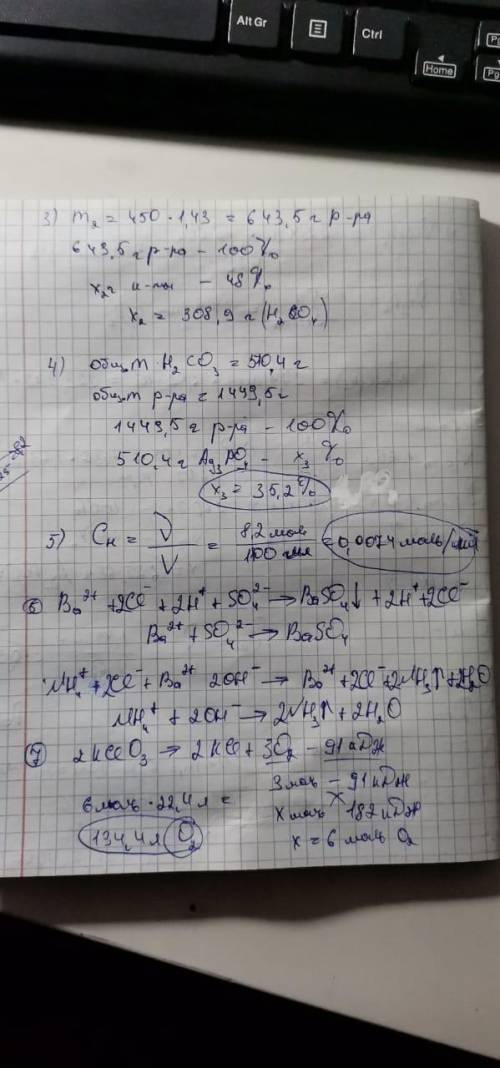 Alt Gr
Ctrl
Home
Pg
3) m₂ = 450 · 1,43 = 643,5 г р-ра
643,5 г р-ра - 100%
x₂ г к-ты - 48%
x₂ = 308,9 г (H₂SO₄)
4) общ m H₂CO₃ = 510,4 г
общ m р-ра = 1449,5 г
1449,5 г р-ра - 100%
510,4 г - x₃ %
x₃ = 35,2%
5) Cн = ν/V = 8,2 моль / 1100 мл = 0,0074 моль/мл
6 Ba²⁺ + 2Cl⁻ + 2H⁺ + SO₄²⁻ → BaSO₄↓ + 2H⁺ + 2Cl⁻
Ba²⁺ + SO₄²⁻ → BaSO₄
NH₄⁺ + 2Cl⁻ + Ba²⁺ 2OH⁻ → Ba²⁺ + 2Cl⁻ + 2NH₃↑ + 2H₂O
NH₄⁺ + 2OH⁻ → 2NH₃↑ + 2H₂O
7 2KClO₃ → 2KCl + 3O₂ - 91 кДж
3 моль - 91 кДж
6 моль · 22,4 л =
x моль 182 кДж
134,4 л O₂
x = 6 моль O₂